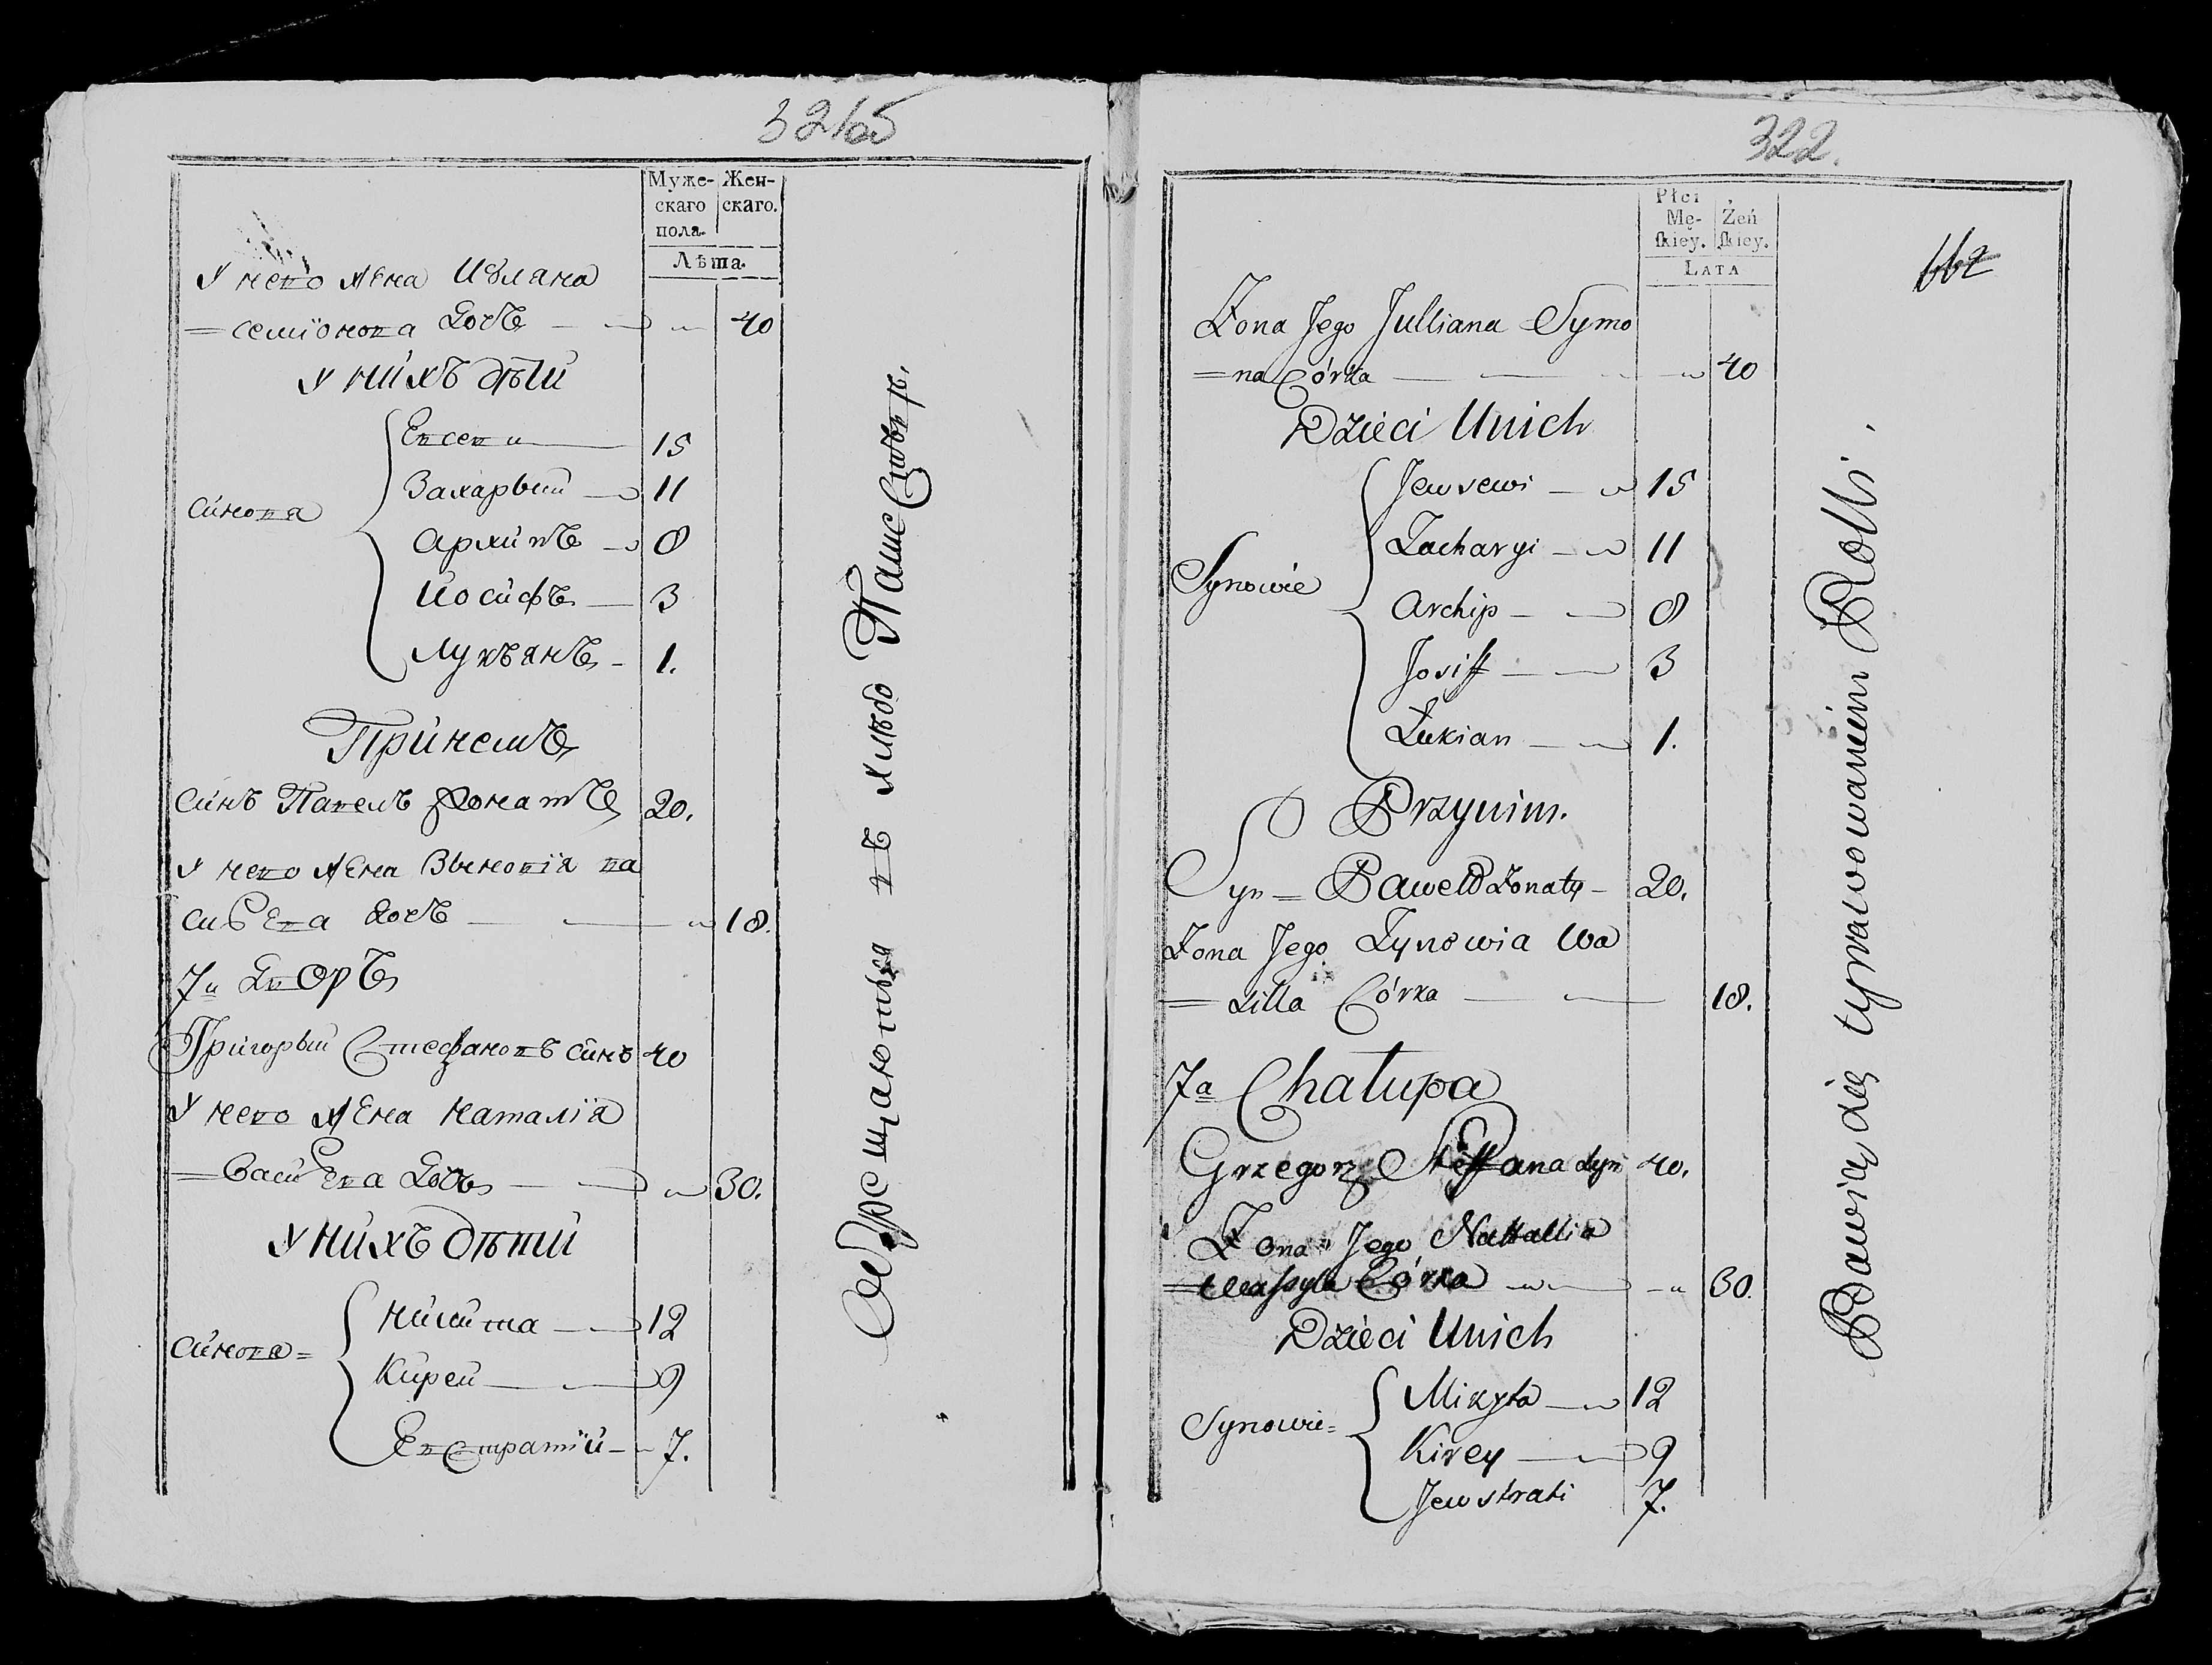 321об
Муже-
скаго
пола.
Жен-
скаго.
Лѣта.
У него жена Иуліана
=семіонова дочъ 40
У нихъ дѣти
синовя
Евсеви 15
Захарьий 11
Архипъ 8
Иосифъ 3
Лукъянъ 1.
Принемъ
Синъ Павелъ Жонатъ 20.
У него жена Зѣновія ва
сиљева дочъ 18.
7й Дворъ
Григорьий Стефановъ синъ 40
У него жена Наталія
=Василева дочъ 30.
У нихъ дѣти
Синовя=
Никита 12
Кирей 9
Евстратій 7.
въ хлѣбо
322.
Płci
Mę-
skiey.
Żeń
skiey.
LATA
662
Zona Jego Julliana Symo
=na Córka 40
Dzieci Unich
Synowie
Jewsewi 15
Zacharyi 11
Archip 8
Josiff 3
Łukian 1.
Przynim.
Syn = Paweł Zonaty 20.
Zona Jego Zynowia Wa
=silla Córka 18.
7a Chałupa
Grzegorz Steffana syn 40.
Zona Jego Nattallia
=Wasyla Córka 30.
Dzieci Unich
Synowie=
Mikyta 12
Kirey 9
Jewstrati 7.
Bawią się uprawowaniem Rolli.